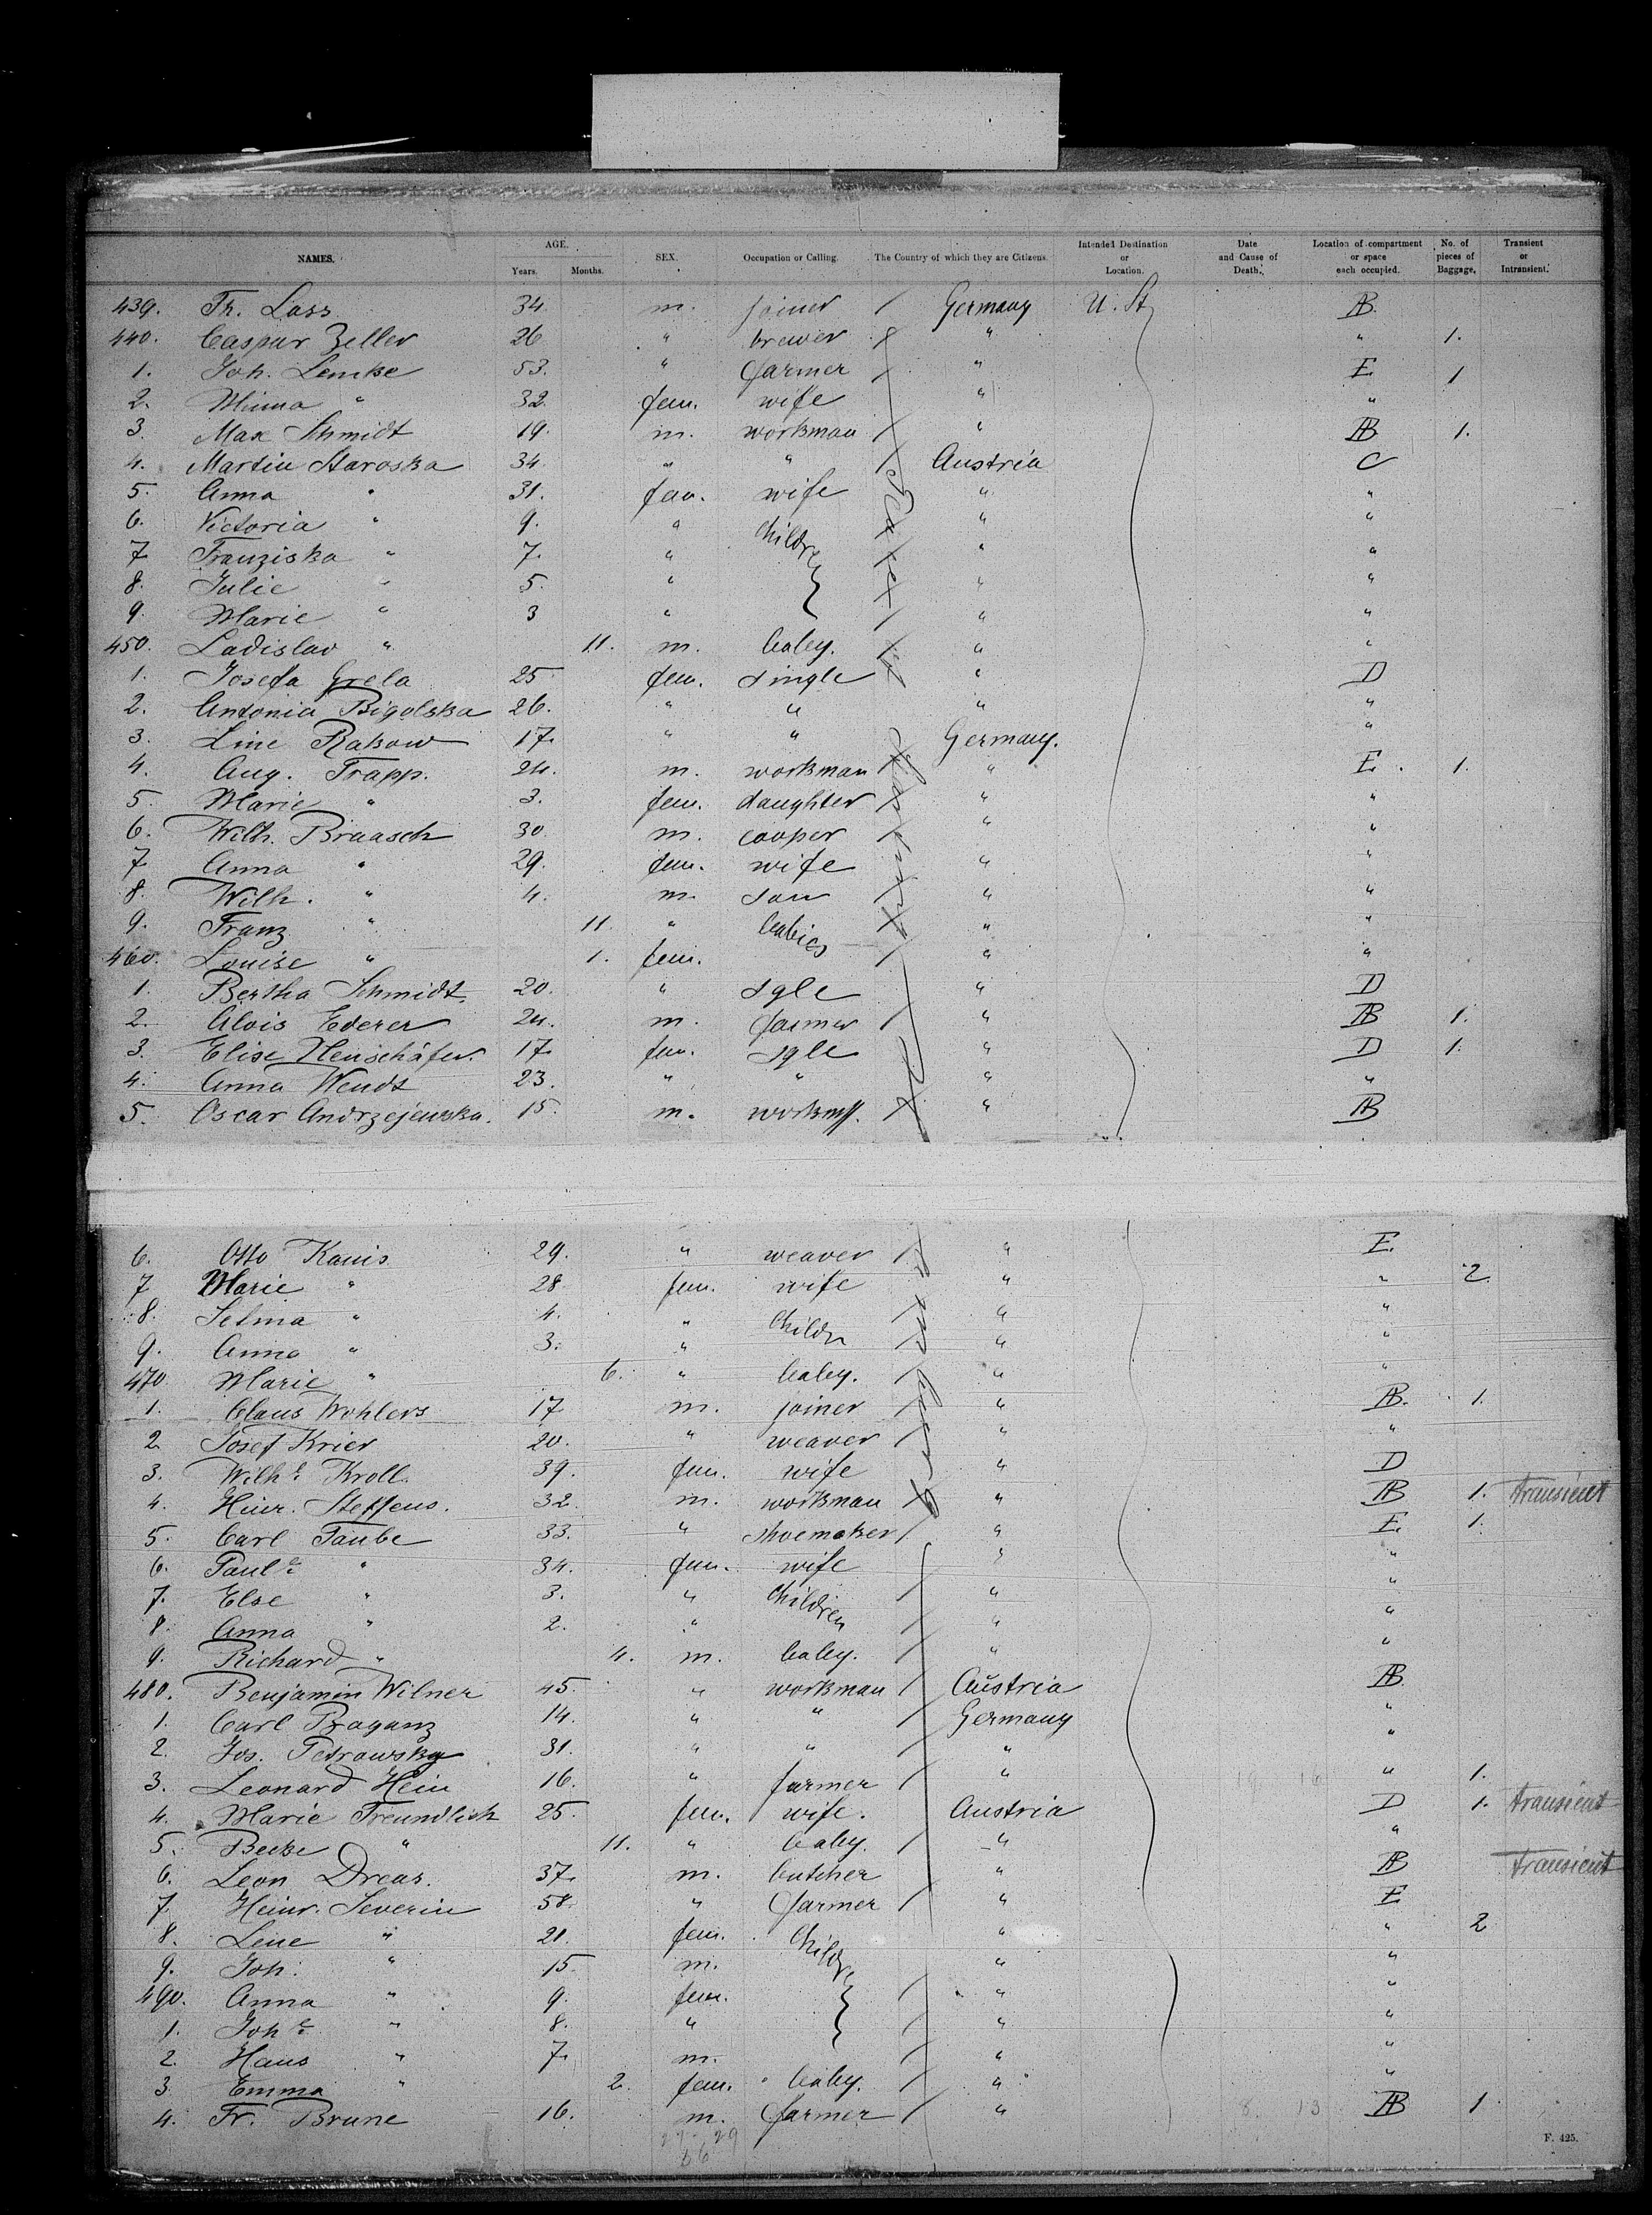 NAMES. AGE. Years. Months. SEX. Occupation or Calling. The Country of which they are Citizens. Intended Destination or Location. Date and Cause of Death. Location of compartment or space each occupied. No. of pieces of Baggage. Transient or Intransient.
439. Th. Lass 34 m. joiner Germany U. St AB.
440. Caspar Zeller 26 " brewer " " 1.
1. Joh. Lemke 53. " farmer " E. 1
2. Minna " 32 fem. wife " "
3. Max Schmidt 19. m. workman " AB 1.
4. Martin Staroska 34 " " Austria C
5. Anna " 31. fem. wife " "
6. Victoria " 9. " Children " "
7 Franziska " 7. " " "
8. Julie " 5. " " "
9. Marie " 3 " " "
450. Ladislav " 11. m. baby. " "
1. Josefa Grela 25 fem. single " D
2. Antonia Bigolska 26. " " " "
3. Line Rakow 17. " " Germany. "
4. Aug. Trapp. 24. m. workman " E. 1.
5. Marie " 3. fem. daughter " "
6. Wilh. Braasch 30 m. cooper " "
7 Anna " 29. fem. wife " "
8. Wilh. " 4. m. son " "
9. Franz " 11. " babies " "
460. Louise " 1. fem. " "
1. Bertha Schmidt. 20. " sgle " D
2. Alois Ederer 24. m. farmer " AB 1.
3. Elise Heuschäfer. 17. fem. sgle " D 1.
4. Anna Wendt 23. " " " "
5. Oscar Andrzejewska. 15. m. workm. " AB
6. Otto Kanis 29. " weaver " E.
7 Marie " 28. fem. wife " " 2.
8. Selma " 4. " Childr " "
9. Anna " 3. " " "
470 Marie " 6. " baby. " "
1. Claus Wohlers 17 m. joiner " AB. 1.
2 Josef Krier 20. " weaver " "
3. Wilhe. Kroll. 39. fem. wife " D
4. Hinr. Steffens. 32. m. workman " AB 1. transient
5. Carl Taube 33. " shoemaker " E. 1.
6. Paule. " 34. fem. wife " "
7. Else " 3. " Children " "
8. Anna " 2. " " "
9. Richard " 4. m. baby. " "
480. Benjamin Wilner 45. " workman Austria AB.
1. Carl Braganz 14. " " Germany "
2. Jos. Petrowsky 31. " " " "
3. Leonard Hein 16. " farmer " " 1.
4. Marie Freundlich 25. fem. wife. Austria D 1. transient
5. Beeke " 11. " baby. " "
6. Leon Drear. 37. m. butcher " AB transient
7. Heinr. Severin 58. " farmer " E
8. Line " 21. fem. Childr " " 2
9. Joh. " 15. m. " "
490. Anna " 9. fem. " "
1. Johe. " 8. " " "
2. Hans " 7. m. " "
3 Emma " 2. fem. baby. " "
4. Fr. Brune 16. m. farmer " AB 1
F. 425.